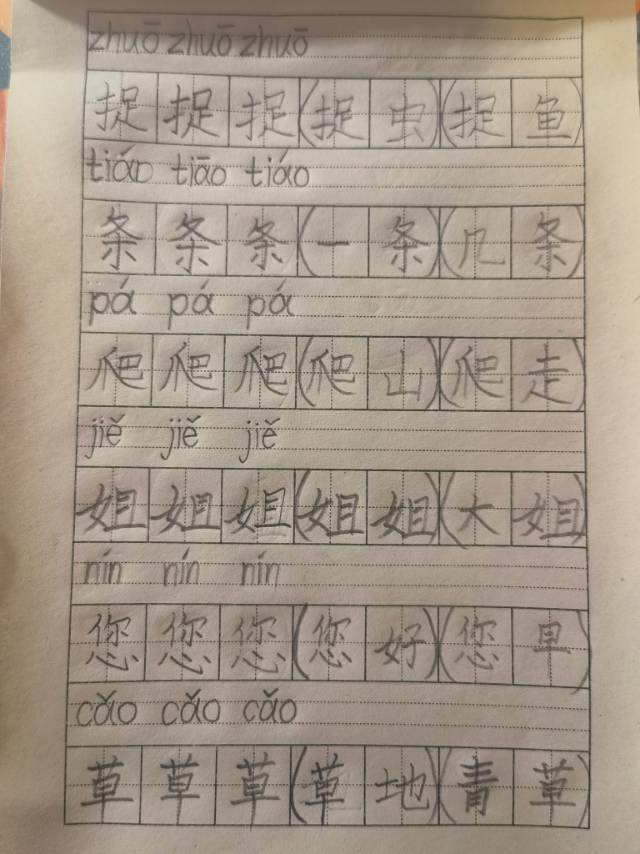 zhuō zhuō zhuō
捉 捉 捉 (捉 虫) (捉 鱼)
tiáo tiāo tiáo
条 条 条 (一 条) (几 条)
pá pá pá
爬 爬 爬 (爬 山) (爬 走)
jiě jiě jiě
姐 姐 姐 (姐 姐) (大 姐)
nín nín nín
您 您 您 (您 好) (您 早)
cǎo cǎo cǎo
草 草 草 (草 地) (青 草)